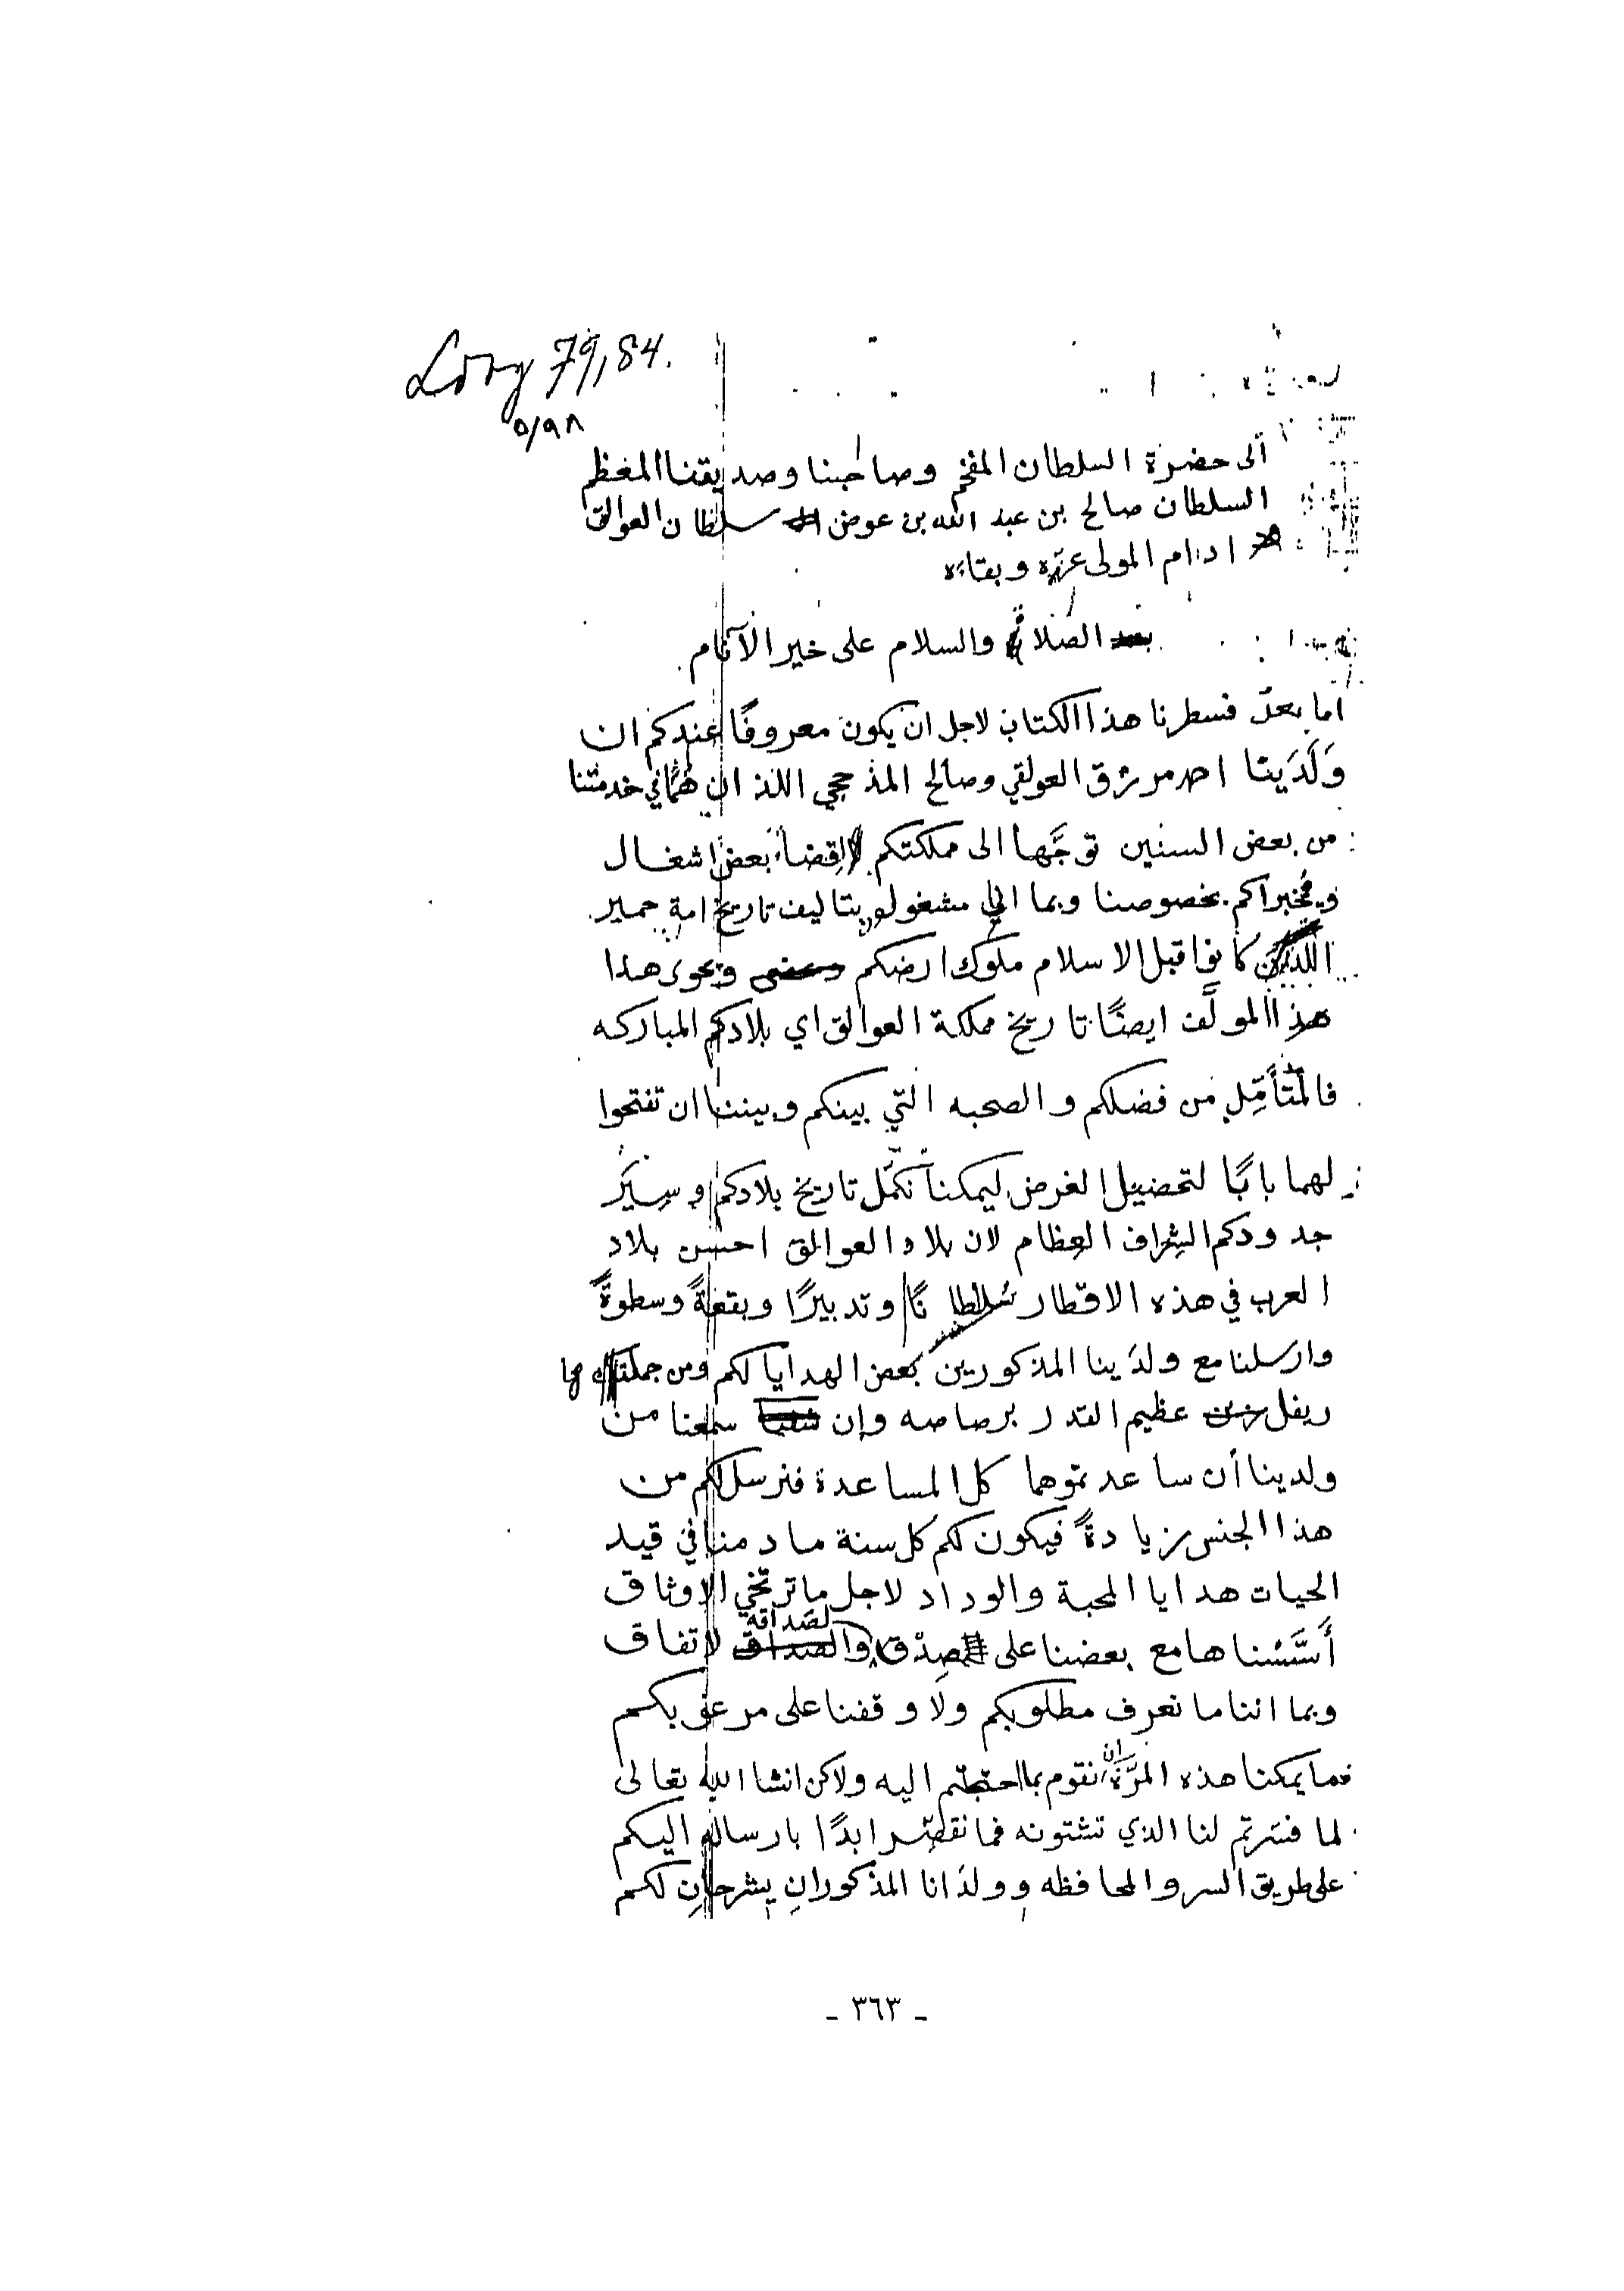 79,84.
٥/٩٨
الى حضرة السلطان المفخم وصاحبنا وصديقنا المعظم
السلطان صالح بن عبد الله بن عوض سلطان العوالق
ادام المولى عزّه وبقاءه
بعد الصلاة والسلام على خير الآنام
اما بعد فسطرنا هذا الكتاب لاجل ان يكون معروفًا عندكم ان
وَلَدَينا احمد مرزق العولقي وصالح المذحجي اللذان هما في خدمتنا
من بعض السنين توجَّها الى مملكتكم لقضاء بعض اشغال
ويخبراكم بخصوصنا وبما اني مشغول بتاليف تاريخ امة حمير
الذين كانوا قبل الاسلام ملوك ارضكم ويحوى هذا
هذا المولَّف ايضًا تاريخ مملكة العوالق اي بلادكم المباركه
فالمتأمِّل من فضلكم والصحبه التي بينكم وبيننا ان تفتحوا
لهما بابًا لتحصيل الغرض ليمكننا نكمّل تاريخ بلادكم وسِيَر
جدودكم الشراف العظام لان بلاد العوالق احسن بلاد
العرب في هذه الاقطار سُلطانًا وتدبيرًا وبقعةً وسطوةً
وارسلنا مع ولدَينا المذكورين بعض الهدايا لكم ومن جملتها
ريفل عظيم القدر برصاصه وإن سمعنا من
ولدينا أن ساعدتموهما كل المساعدة فنرسل لكم من
هذا الجنس زيادةً فيكون لكم كل سنة ما دمنا في قيد
الحيات هدايا المحبة والوداد لاجل ما ترتخي الاوثاق
أَسَّسْناها مع بعضنا على صِدْق والصداقه لاتفاق
وبما اننا ما نعرف مطلوبكم ولا وقفنا على مرغوبكم
فما يمكننا هذه المرَّة ان نقوم بما احتجتم اليه ولاكن انشا الله تعالى
لما فسّرتم لنا الذي تشتونه فما نقصّر ابدًا بارساله اليكم
على طريق السر والمحافظه وولدَانا المذكورانِ يشرحانِ لكم
- ٣٦٣ -